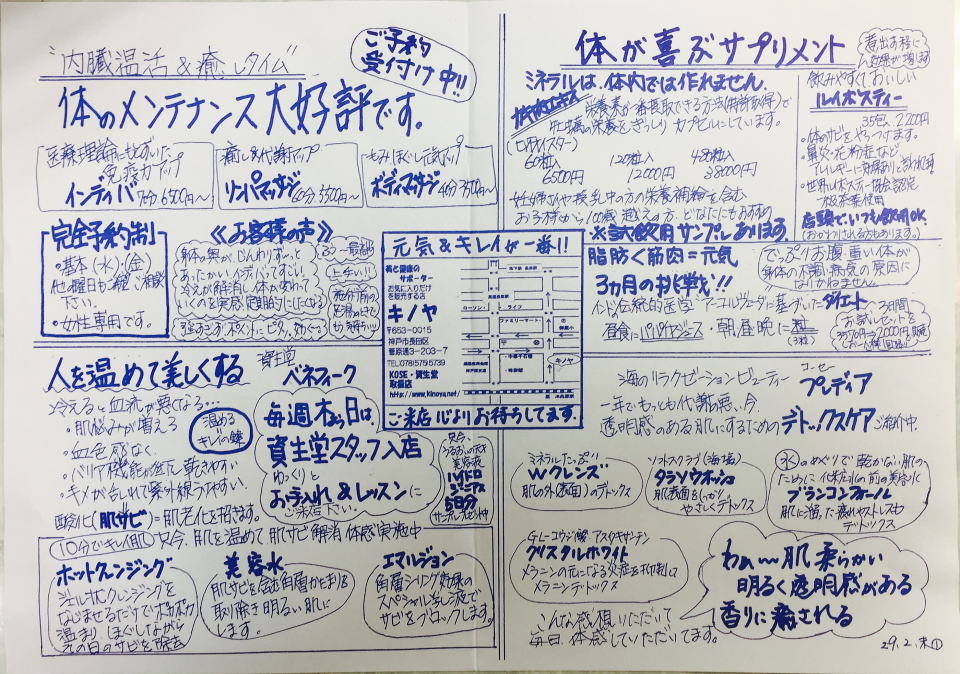 "内臓温活&癒しタイム"
ご予約
受付け中!!
体のメンテナンス大好評です。
医療理論にもとずいた
免疫力アップ
インディバ 70分 6500円〜
癒し&代謝アップ
リンパマッサージ
もみほぐし元気アップ
ボディマッサージ
完全予約制
・基本(水)・(金)
他曜日も一確ご相談
下さい。
・女性専用です。
《お客様の声》
身体の奥が、じんわりずーっと
あったかいインディバってすごい!
冷えが解消し体が変わって
いくのを実感、定期的にしたくなる
元気&キレイが一番!!
美と健康の
サポーター
お気に入りだけ
を販売する店
キノヤ
〒653-0015
神戸市長田区
菅原通3-203-7
TEL078(575)5739
KOSE・資生堂
取扱店
http://www.kinoya.net/
ローソン
ライフ
ファミリーマート
キノヤ
ご来店心よりお待ちしてます。
体が喜ぶサプリメント
ミネラルは、体内では作れません。
栄養素が一番摂取できる方法(特許取得)で
牡蠣の栄養をぎっしりカプセルにしています。
60粒入
6500円
120粒入
12000円
480粒入
38000円
妊婦さんや授乳中の方の栄養補給を含む
お子様から100歳越えの方、どなたにもおすすめ
※試飲用サンプルあります
煮出す程に
効果が増します
飲みやすくておいしい
ルイボスティー
35包、2,200円
・体のサビをやっつけます。
・鼻炎・花粉症など
アレルギーに効果ありと言われてます
・世界ルイボスティー協会認定
店頭でいつも飲用OK
(おかわりされる方もあります。)
脂肪<筋肉=元気
3ヵ月の挑戦!!
でっぷりお腹・重い体が
身体の不調・病気の原因に
なりかねません。
インド伝統的医学 アーユルヴェーダに基ずいたダイエット
昼食にパパイヤジュース・朝昼晩に一粒
(3粒)
3日間
お試しセットを
人を温めて美しくする
冷えると血流が悪くなる…
・肌悩みが増える
・血色感なく
・バリア機能が低下し乾きやすい
・キメが乱れて紫外線うけやすい
酸化(肌サビ)=肌老化を招きます。
温める
キレイの鍵
資生堂
ベネフィーク
毎週木よう日は、
資生堂スタッフ入店
ゆっくりと
お手入れ&レッスンに
ご来店下さい。
只今、
うるおいの天才
美容液
ハイドロ
ジーニアス
5日分
サンプルプレゼント中
(10分でキレイ肌) 只今、肌を温めて肌サビ解消体感実施中
ホットクレンジング
ジェル状クレンジングを
なじませるだけでポカポカ
温まり、ほぐしながら
その日のサビを除去
美容水
肌サビを含む角層かたまりを
取り除き明るい肌に
します。
エマルジョン
角層シーリング効果の
スペシャル乳液で
サビをブロックします。
海のリラクゼーションビューティー
コーセー
プレディア
一年でもっとも代謝悪い今、
透明感のある肌にするためのデトックスケアご紹介中
ミネラルたっぷり
Wクレンズ
肌の外(表面)のデトックス
ソルトスクラブ(海塩)
タラソウォッシュ
肌表面をしっかり
やさしくデトックス
(水)のめぐりで乾かない肌の
ために 化粧水の前の美容水
ブランコンフォール
肌に溜った疲れやストレスを
デトックス
G.L-コウジ酸 アスタキサンチン
クリスタルホワイト
メラニンの元になる炎症を抑制して
メラニンデトックス
こんな感想いただいて
毎日、体感していただいてます。
わぁ〜肌柔らかい
明るく透明感がある
香りに癒される
29.2.末①